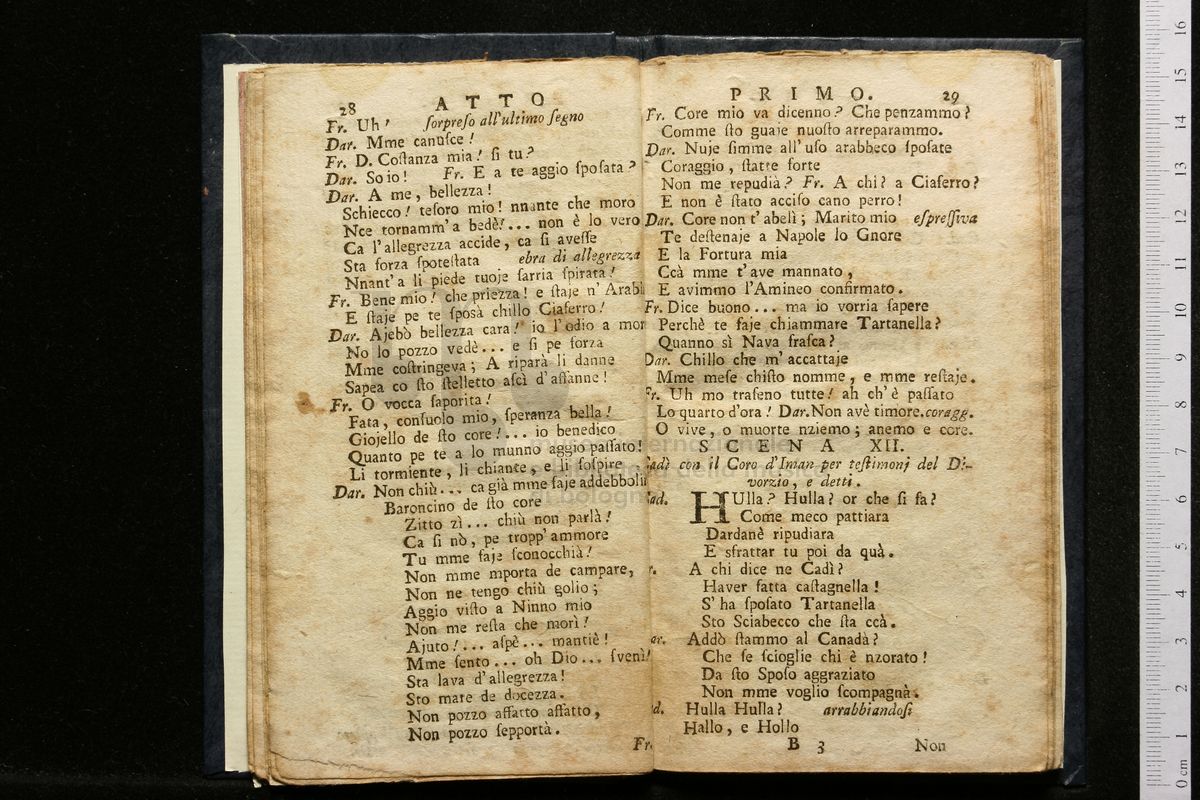 28 ATTO
Fr. Uh! ſorpreſo all'ultimo ſegno
Dar. Mme canuſce!
Fr. D. Coſtanza mia! ſi tu?
Dar. So io! Fr. E a te aggio ſpoſata?
Dar. A me, bellezza!
Schiecco! teſoro mio! nnante che moro
Nce tornamm'a bedè!... non è lo vero
Ca l'allegrezza accide, ca ſi aveſſe
Sta forza ſpoteſtata ebra di allegrezza
Nnant'a li piede tuoje ſarria ſpirata!
Fr. Bene mio! che priezza! e ſtaje n'Arabi
E ſtaje pe te ſposà chillo Ciaferro!
Dar. Ajebò bellezza cara! io l'odio a mor
No lo pozzo vedè... e ſi pe forza
Mme coſtringeva; A riparà li danne
Sapea co ſto ſtelletto aſcì d'affanne!
Fr. O vocca ſaporita!
Fata, conſuolo mio, ſperanza bella!
Giojello de ſto core!... io benedico
Quanto pe te a lo munno aggio paſſato!
Li tormiente, li chiante, e li ſoſpire
Dar. Non chiù... ca già mme faje addebboli
Baroncino de ſto core
Zitto zì... chiù non parlà!
Ca ſi nò, pe tropp'ammore
Tu mme faje ſconocchià!
Non mme mporta de campare,
Non ne tengo chiù golio;
Aggio viſto a Ninno mio
Non me reſta che morì!
Ajuto!... aſpè... mantiè!
Mme ſento... oh Dio... ſvenì!
Sta lava d'allegrezza!
Sto mare de docezza.
Non pozzo affatto affatto,
Non pozzo ſepportà.
Fr.
PRIMO. 29
Fr. Core mio va dicenno? Che penzammo?
Comme ſto guaje nuoſto arreparammo.
Dar. Nuje ſimme all'uſo arabbeco ſpoſate
Coraggio, ſtatte forte
Non me repudià? Fr. A chi? a Ciaferro?
E non è ſtato acciſo cano perro!
Dar. Core non t'abelì; Marito mio eſpreſſiva
Te deſtenaje a Napole lo Gnore
E la Fortura mia
Ccà mme t'ave mannato,
E avimmo l'Amineo confirmato.
Fr. Dice buono... ma io vorria ſapere
Perchè te faje chiammare Tartanella?
Quanno sì Nava fraſca?
Dar. Chillo che m'accattaje
Mme meſe chiſto nomme, e mme reſtaje.
Fr. Uh mo traſeno tutte! ah ch'è paſſato
Lo quarto d'ora! Dar. Non avè timore. coragg.
O vive, o muorte nziemo; anemo e core.
SCENA XII.
Cadì con il Coro d'Iman per teſtimonj del Di-
vorzio, e detti.
Cad. HUlla? Hulla? or che ſi fa?
Come meco pattiara
Dardanè ripudiara
E sfrattar tu poi da quà.
r. A chi dice ne Cadì?
Haver fatta caſtagnella!
S'ha ſpoſato Tartanella
Sto Sciabecco che ſta ccà.
ar. Addò ſtammo al Canadà?
Che ſe ſcioglie chi è nzorato!
Da ſto Spoſo aggraziato
Non mme voglio ſcompagnà.
d. Hulla Hulla? arrabbiandoſi
Hallo, e Hollo
B 3 Non